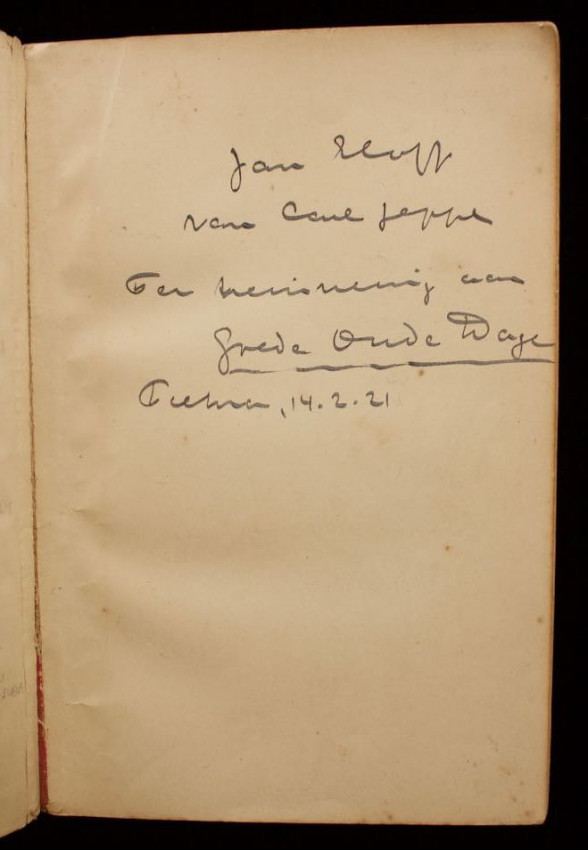 Jan Eloff
van Carl Jeppe
Ter herinnering aan
Goede Oude Dage
14.2.21